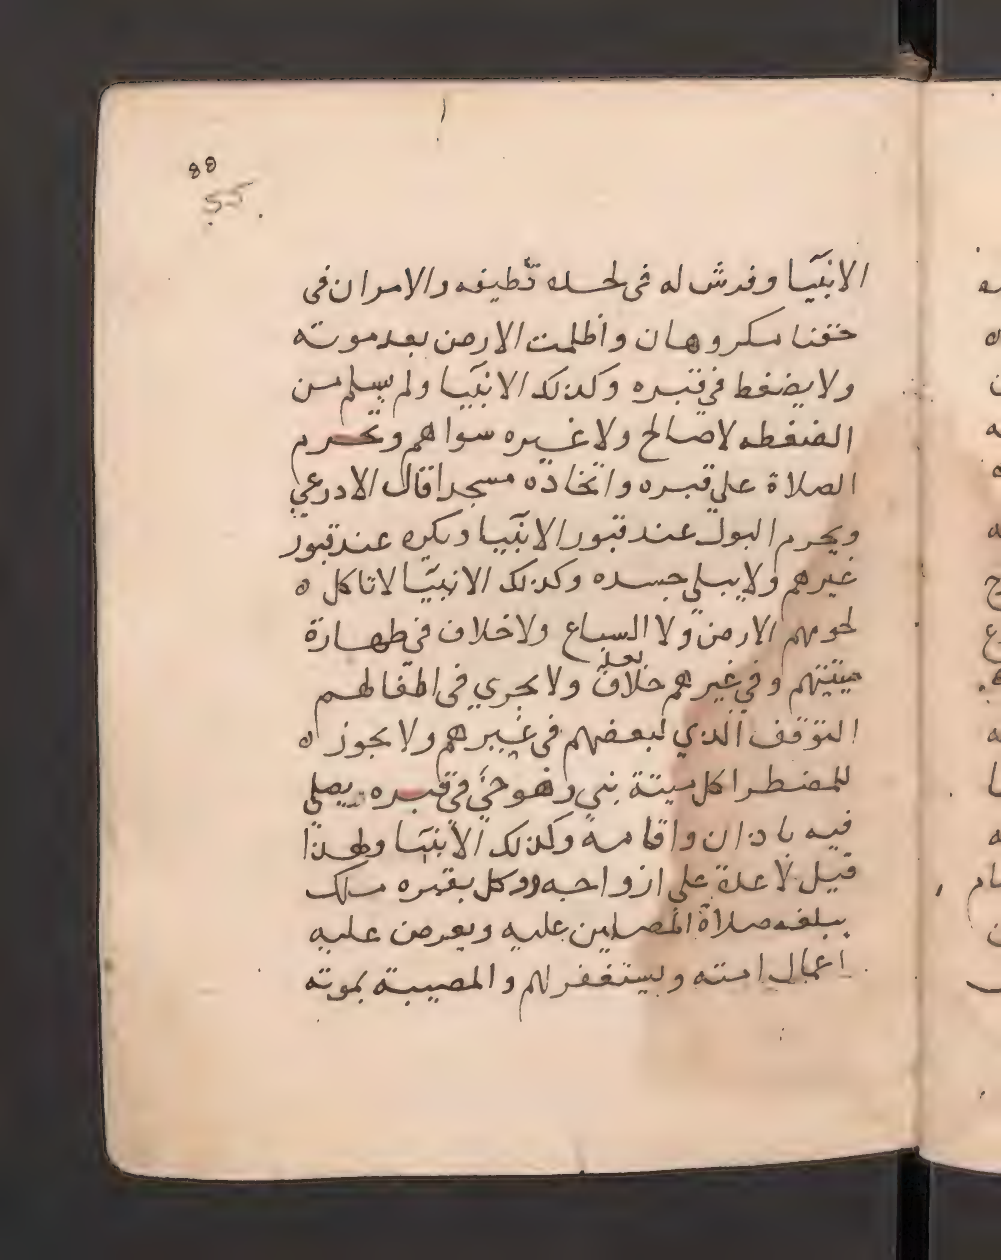 88
55
الانبيا وفرش له في لحده قطيفه والامران في
حقنا مكروهان واظلمت الارض بعد موته
ولا يضغط في قبره وكذلك الانبيا ولم يسلم من
الضغطه لا صالح ولا غيره سواهم وتحرم
الصلاة علي قبره واتخاذه مسجدا قال الادرعي
ويحرم البول عند قبور الانبيا ويكره عند قبور
غيرهم ولا يبلي جسده وكذلك الانبيا لا تاكل ه
لحومهم الارض ولا السباع ولا خلاف في طهارة
ميتتهم وفي غيرهم خلاف ولا يجري في اطفالهم
التوقف الذي لبعضهم في غيرهم ولا يجوز ه
للمضطر اكل ميتة نبي وهو حي في قبره يصلي
فيه باذان واقامة وكذلك الانبيا ولهذا
قيل لا عدة علي ازواجه ووكل بقبره ملك
يبلغه صلاة المصلين عليه ويعرض عليه
اعمال امته ويستغفر لهم والمصيبة بموته